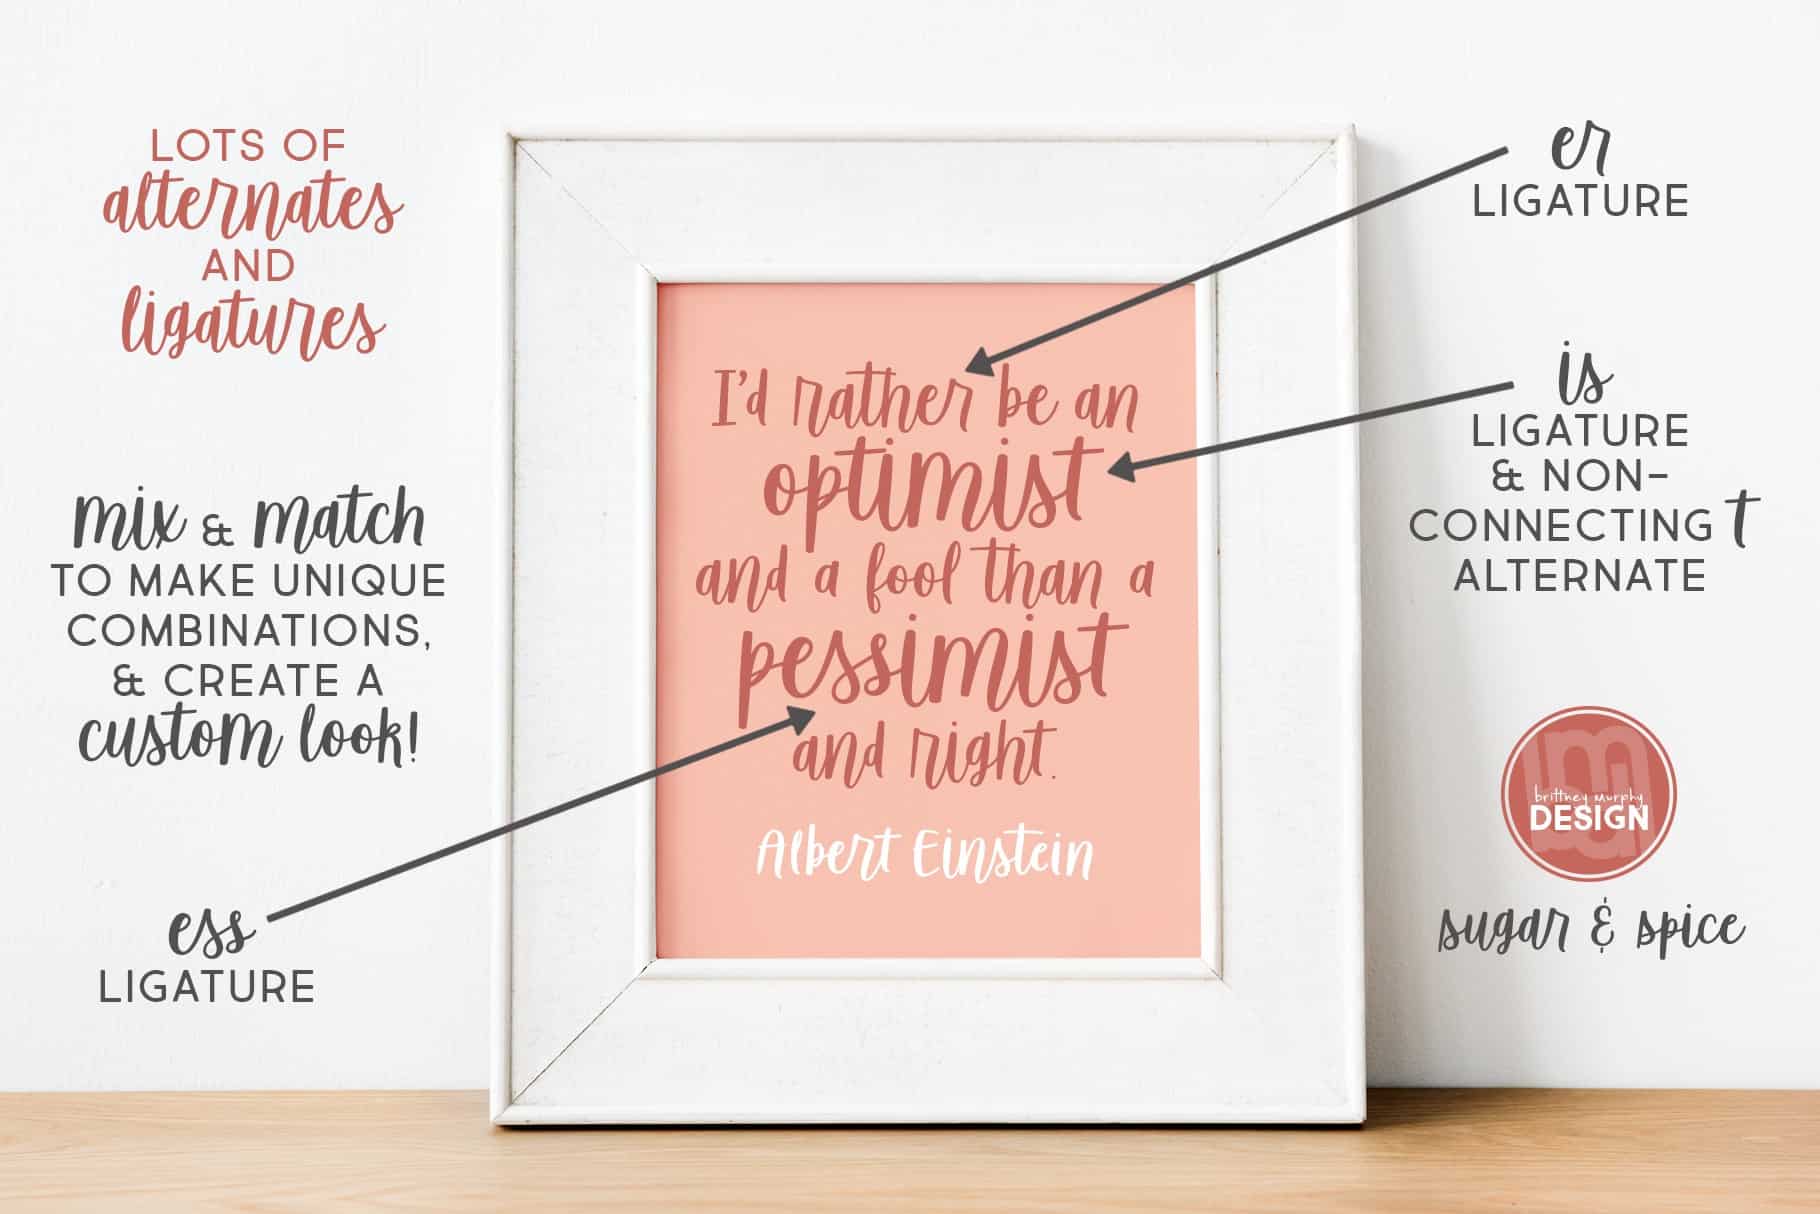 LOTS OF
alternates
AND
ligatures
mix & match
TO MAKE UNIQUE
COMBINATIONS,
& CREATE A
custom look!
ess
LIGATURE
I'd rather be an
optimist
and a fool than a
pessimist
and right.
Albert Einstein
er
LIGATURE
is
LIGATURE
& NON-
CONNECTING t
ALTERNATE
bmd
brittney murphy
DESIGN
sugar & spice